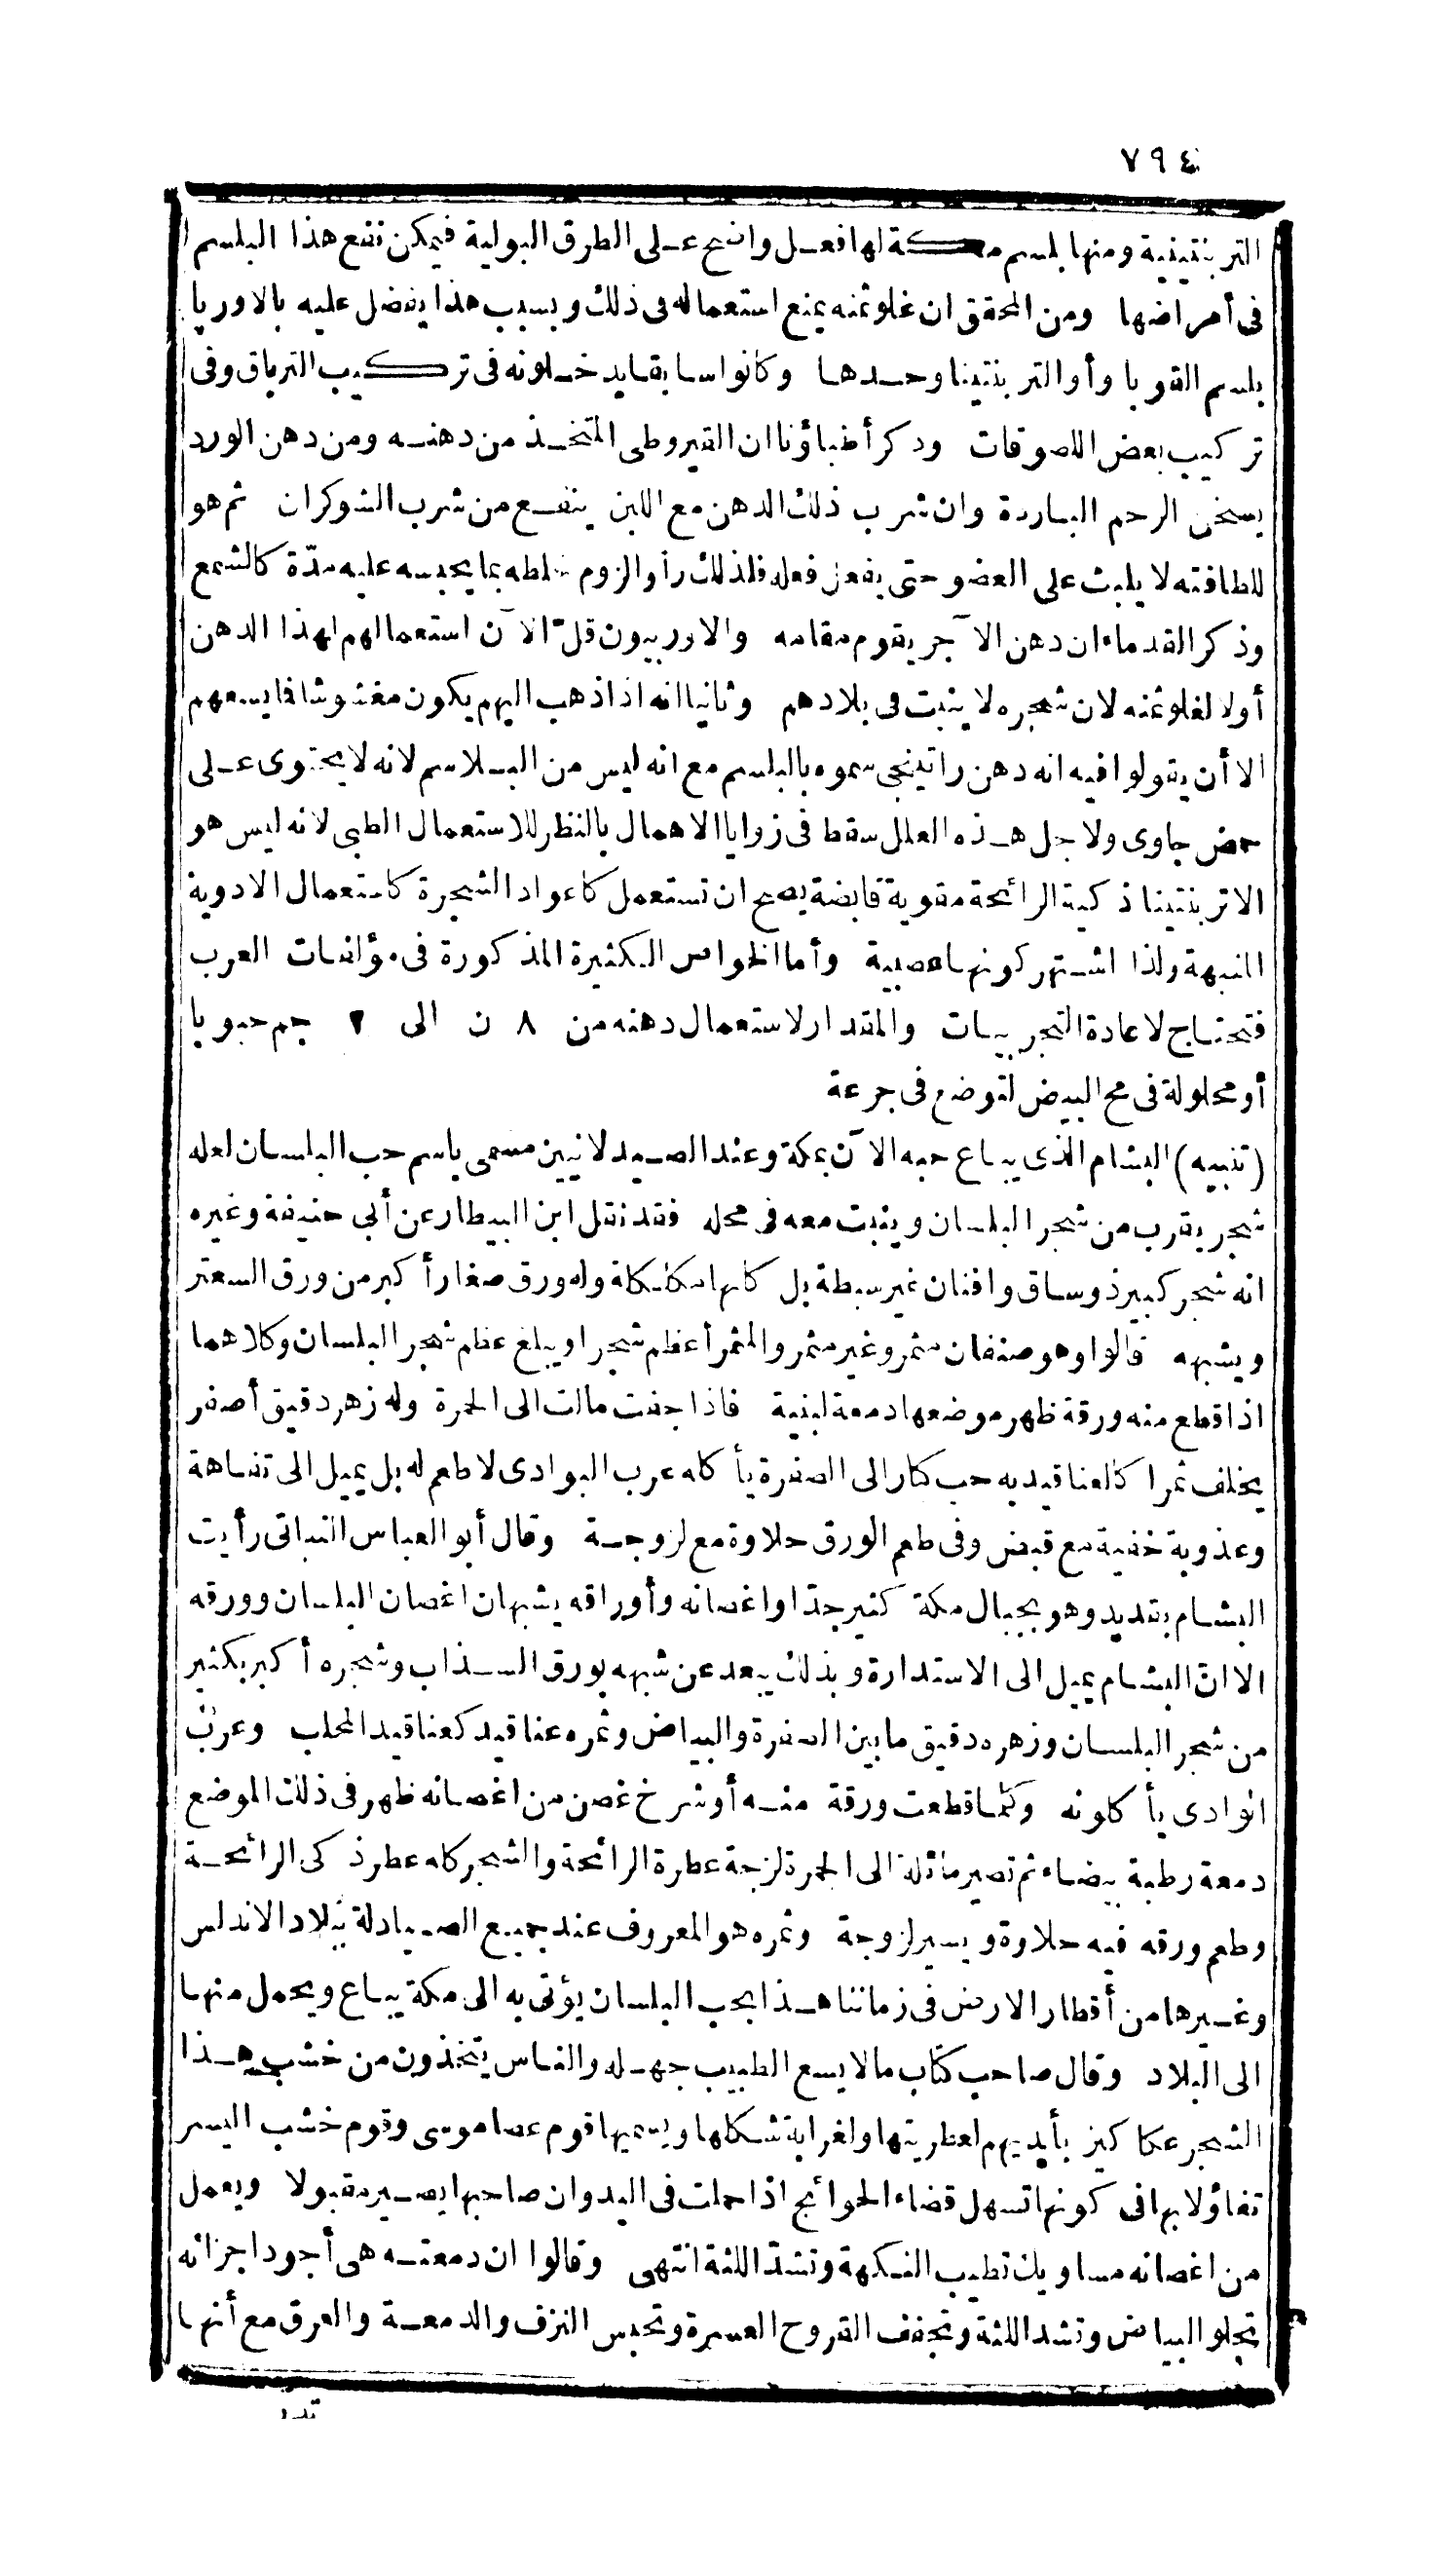 ٧٩٤
التربنتينية ومنها بلسم مكة لها فعل واضح على الطرق البولية فيمكن نفع هذا البلسم
في أمراضها ومن المحقق ان غلو ثمنه يمنع استعماله في ذلك وبسبب هذا يفضل عليه بالاوربا
بلسم القوبا وأو التربنتينا وحدها وكانوا سابقا يدخلونه في تركيب الترياق وفي
تركيب بعض اللصوقات وذكر أطباؤنا ان القيروطى المتخذ من دهنه ومن دهن الورد
يسخن الرحم الباردة وان شرب ذلك الدهن مع اللبن ينفع من شرب الشوكران ثم هو
للطافته لا يلبث على العضو حتى يفعل فعله فلذلك رأوا لزوم خلطه بما يحبسه عليه مدّة كالشمع
وذكر القدماء ان دهن الآجر يقوم مقامه والاوربيون قلّ الآن استعمالهم لهذا الدهن
أولا لغلو ثمنه لان شجره لا ينبت في بلادهم وثانيا انه اذا ذهب اليهم يكون مغشوشا فما يسعهم
الا أن يقولوا فيه انه دهن راتينجى سموه بالبلسم مع انه ليس من البلاسم لانه لا يحتوى على
حمض جاوى ولاجل هذه العلل سقط في زوايا الاهمال بالنظر للاستعمال الطبى لانه ليس هو
الا تربنتينا ذكية الرائحة مقوية قابضة يصح ان تستعمل كاعواد الشجرة كاستعمال الادوية
المنبهة ولذا اشتهر كونها عصبية وأما الخواص الكثيرة المذكورة في مؤلفات العرب
فتحتاج لاعادة التجريبات والمقدار لاستعمال دهنه من ٨ ن الى ٢ جم حبوبا
أو محلولة في مح البيض لتوضع في جرعة
(تنبيه) البشام الذى يباع حبه الآن بمكة وعند الصيدلانيين مسمى باسم حب البلسان لعله
شجر يقرب من شجر البلسان وينبت معه في محله فقد نقل ابن البيطار عن أبى حنيفة وغيره
انه شجر كبير ذو ساق وافنان غير سبطة بل كلها متكاتكة وله ورق صغار أكبر من ورق السعتر
ويشبهه قالوا وهو صنفان مثمر وغير مثمر والمثمر أعظم شجرا ويبلغ عظم شجر البلسان وكلاهما
اذا قطع منه ورقة ظهر موضعها دمعة لبنية فاذا جفت مالت الى الحمرة وله زهر دقيق أصفر
يخلف ثمرا كالعناقيد به حب كثار الى الصفرة يأكله عرب البوادى لا طعم له بل يميل الى تفاهة
وعذوبة خفية مع قبض وفى طعم الورق حلاوة مع لزوجة وقال أبو العباس النباتى رأيت
البشام بقديد وهو بجبال مكة كثير جدّا واغصانه وأوراقه يشبهان اغصان البلسان وورقه
الا انّ البشام يميل الى الاستدارة وبذلك يبعد عن شبهه بورق السذاب وشجره أكبر بكثير
من شجر البلسان وزهره دقيق ما بين الصفرة والبياض وثمره عناقيد كعناقيد المحلب وعرب
الوادى يأكلونه وكلما قطعت ورقة منه أو شرخ غصن من اغصانه ظهر في ذلك الموضع
دمعة رطبة بيضاء ثم تصير مائلة الى الحمرة لزجة عطرة الرائحة والشجر كله عطر ذكى الرائحة
وطعم ورقه فيه حلاوة ويسير لزوجة وثمره هو المعروف عند جميع الصيادلة ببلاد الاندلس
وغيرها من أقطار الارض في زماننا هذا بحب البلسان يؤتى به الى مكة يباع ويحمل منها
الى البلاد وقال صاحب كتاب ما لا يسع الطبيب جهله والناس يتخذون من خشب هذا
الشجر عكاكيز بأيديهم لعطريتها ولغرابة شكلها ويسميها قوم عصا موسى وقوم خشب اليسر
تفاؤلا بها في كونها تسهل قضاء الحوائج اذا حملت في اليد وان صاحبها يصير مقبولا ويعمل
من اغصانه مساويك تطيب النكهة وتشدّ اللثة انتهى وقالوا ان دمعته هى أجود اجزائه
تجلو البياض وتشد اللثة وتجفف القروح العسرة وتحبس النزف والدمعة والعرق مع أنها